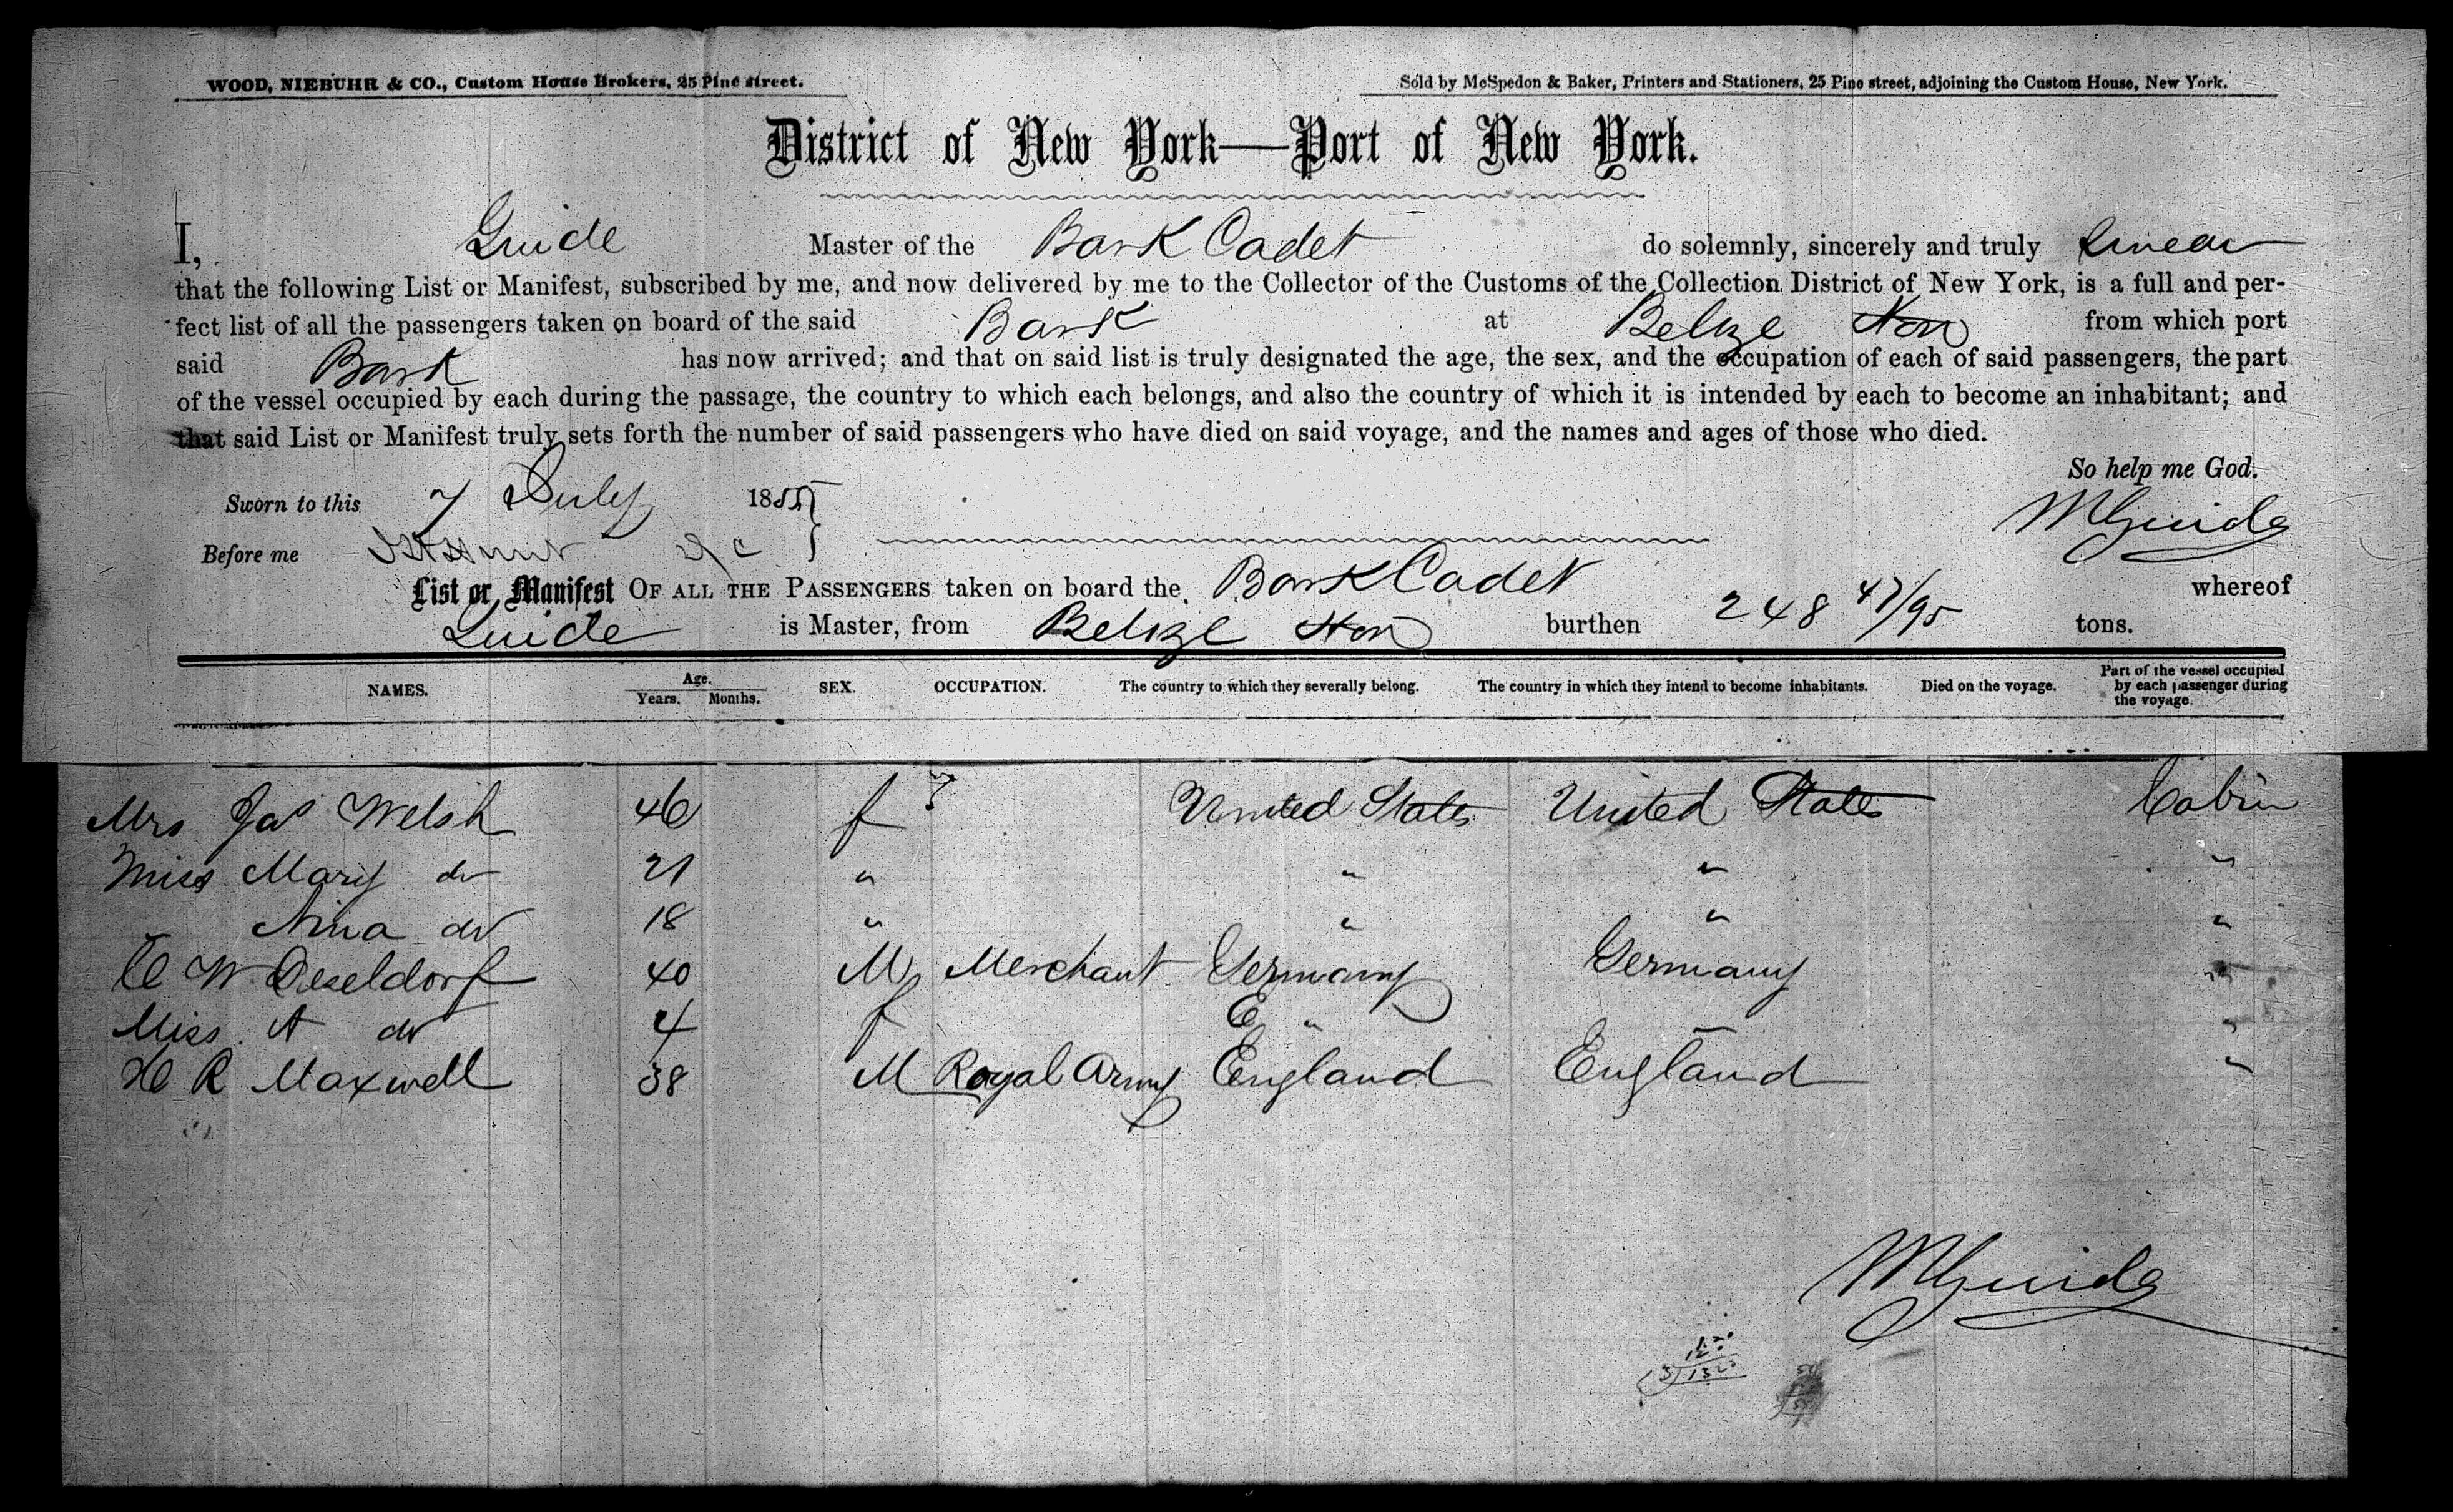 WOOD, NIEBUHR & CO., Custom House Brokers, 25 Pine street.
Sold by McSpedon & Baker, Printers and Stationers, 25 Pine street, adjoining the Custom House, New York.
District of New York—Port of New York.
I, Guide Master of the Bark Cadet do solemnly, sincerely and truly swear
that the following List or Manifest, subscribed by me, and now delivered by me to the Collector of the Customs of the Collection District of New York, is a full and per-
fect list of all the passengers taken on board of the said Bark at Belize Hon from which port
said Bark has now arrived; and that on said list is truly designated the age, the sex, and the occupation of each of said passengers, the part
of the vessel occupied by each during the passage, the country to which each belongs, and also the country of which it is intended by each to become an inhabitant; and
that said List or Manifest truly sets forth the number of said passengers who have died on said voyage, and the names and ages of those who died.
So help me God.
Sworn to this 7 July 1855
MGuide
Before me
List or Manifest OF ALL THE PASSENGERS taken on board the Bark Cadet whereof
Guide is Master, from Belize Hon burthen 248 47/95 tons.
NAMES. Age. Years. Months. SEX. OCCUPATION. The country to which they severally belong. The country in which they intend to become inhabitants. Died on the voyage. Part of the vessel occupied by each passenger during the voyage.
Mrs Jas Welsh 46 f United States United States Cabin
Miss Mary do 21 " " " "
Nina do 18 " " " "
C W Deseldorf 40 M Merchant Germany Germany "
Miss A do 4 f " "
H R Maxwell 38 M Royal Army England England "
MGuide